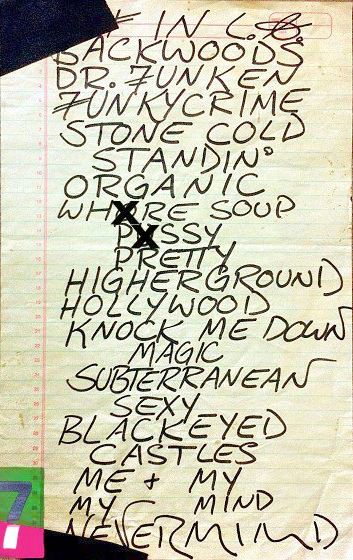 IN L.A.
BACKWOODS
DR. FUNKEN
FUNKYCRIME
STONE COLD
STANDIN'
ORGANIC
WHXRE SOUP
PXSSY
PRETTY
HIGHERGROUND
HOLLYWOOD
KNOCK ME DOWN
MAGIC
SUBTERRANEAN
SEXY
BLACKEYED
CASTLES
ME + MY
MY MIND
NEVERMIND
7